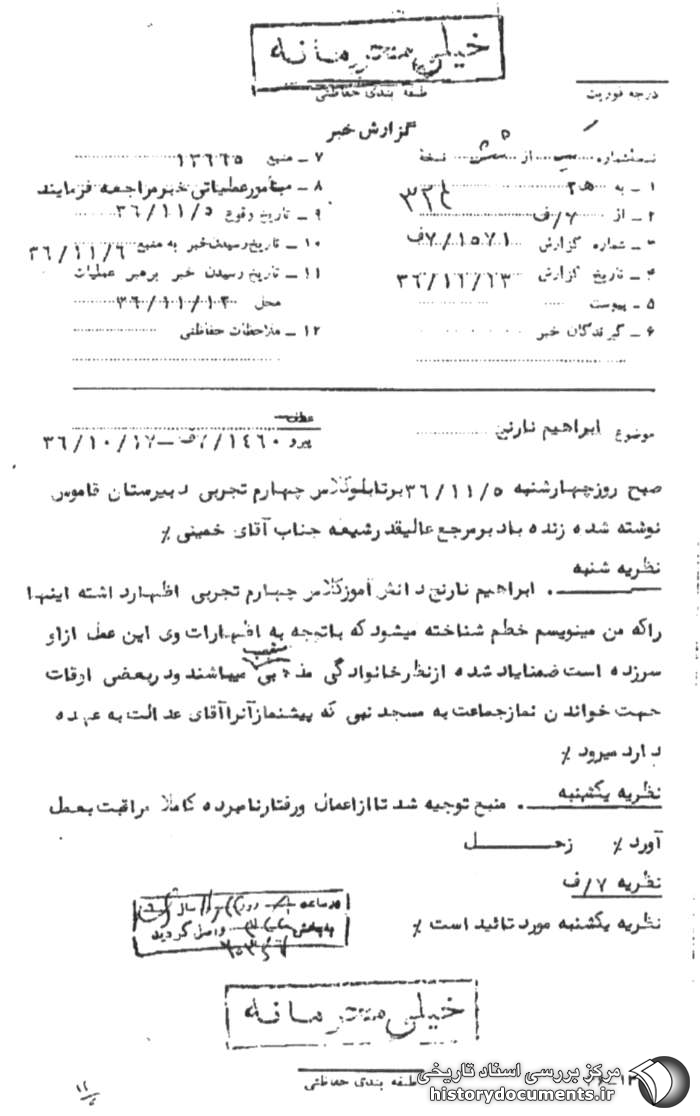 خیلی محرمانه
درجه فوریت
طبقه بندی حفاظتی
گزارش خبر
نسخه شماره از شش نسخه
۱ ـ به ۵۲
۲ ـ از ۷/ف
۳ ـ شماره گزارش ۱۵۷۱/۷ف
۴ ـ تاریخ گزارش ۳۶/۱۱/۱۳
۵ ـ پیوست
۶ ـ گیرندگان خبر
۳۲۴
۷ ـ منبع ۱۳۶۶۵
۸ ـ مبنأمور عملیاتی خبر مراجعه فرمایند
۹ ـ تاریخ وقوع ۳۶/۱۱/۵
۱۰ ـ تاریخ رسیدن خبر به منبع ۳۶/۱۱/۶
۱۱ ـ تاریخ رسیدن خبر برهبر عملیات
محل ۳۶/۱۱/۱۲
۱۲ ـ ملاحظات حفاظتی
موضوع ابراهیم نارنج
عطف
پیرو ۱۴۶۰/۷ف-۳۶/۱۰/۱۷
صبح روز چهارشنبه ۳۶/۱۱/۵ برتابلوکلاس چهارم تجربی دبیرستان قاموس
نوشته شده زنده باد بر مرجع عالیقدر شیعه جناب آقای خمینی ٪
نظریه شنبه
. ابراهیم نارنج دانش آموزکلاس چهارم تجربی اظهار داشته اینها
راکه من مینویسم خطم شناخته میشود که باتوجه به اظهارات وی این عمل ازاو
سرزده است ضمنایاد شده ازنظر خانوادگی مذهبی متعصب میباشند ودربعضی اوقات
جهت خواندن نمازجماعت به مسجد نبی که پیشنمازآنراآقای عدالت به عهده
دارد میرود ٪
نظریه یکشنبه
. منبع توجیه شد تا ازاعمال ورفتار نامبرده کاملا مراقبت بعمل
آورد ٪ زحل
نظریه ۷/ف
نظریه یکشنبه مورد تائید است ٪
در ساعت روز سال
به بخش واصل گردید
خیلی محرمانه
طبقه بندی حفاظتی
مرکز بررسی اسناد تاریخی
historydocuments.ir